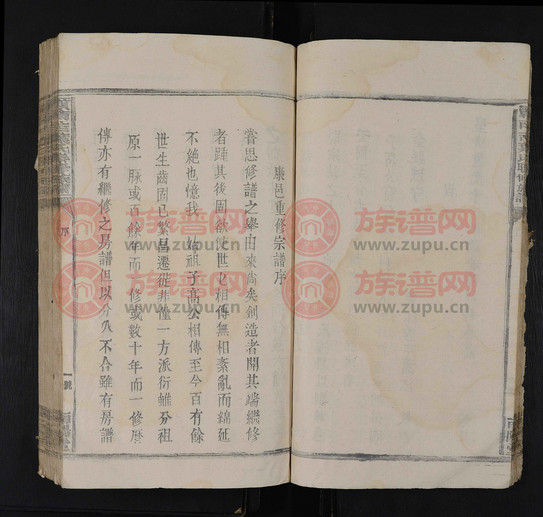 康邑重修宗譜序
嘗思修譜之舉由來尚矣創造者開其端繼修
者踵其後固欲使世世相傳無相紊亂而綿延
不絶也憶我 始祖子高公相傳至今百有餘
世生齒固已繁昌遷徙非僅一方派衍雖分祖
原一脉或百餘年而一修或數十年而一修歷
傳亦有繼修之房譜但以分久不合雖有房譜
序
一號
族谱网
www.zupu.cn
族谱网
www.zupu.cn
族谱网
www.zupu.cn
族谱网
www.zupu.cn